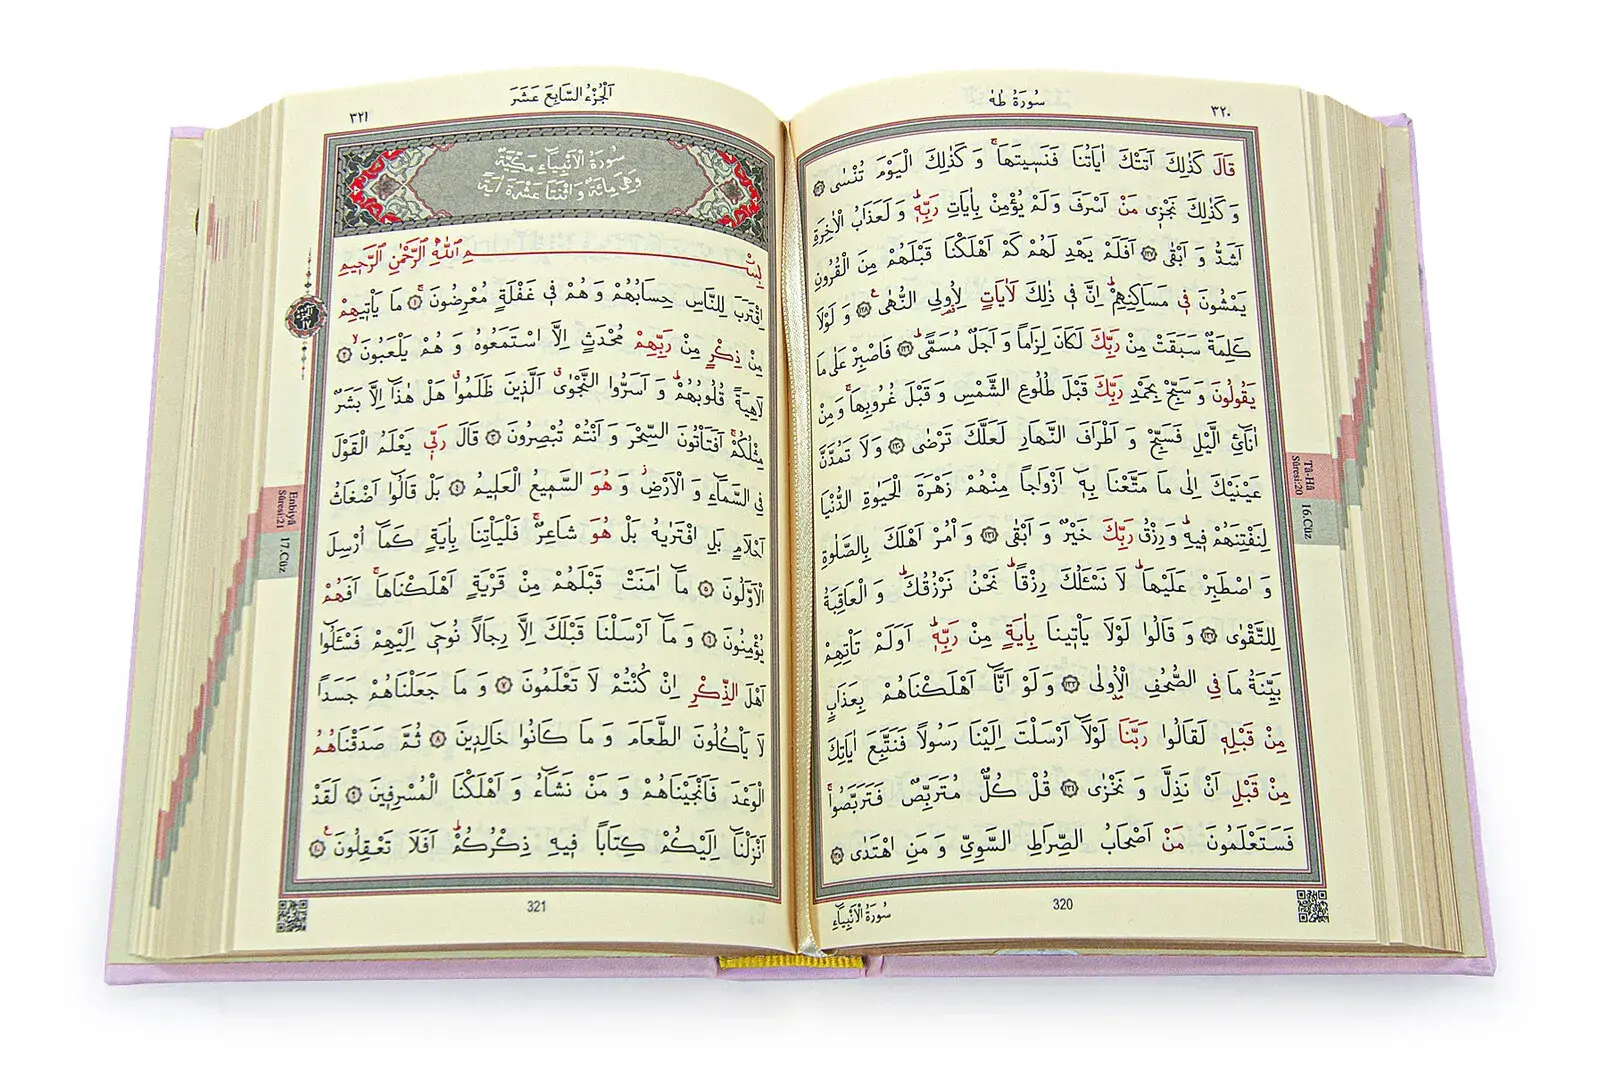 سورة طه
٣٢٠
قَالَ كَذٰلِكَ اَتَتْكَ اٰيَاتُنَا فَنَس۪يتَهَاۚ وَ كَذٰلِكَ الْيَوْمَ تُنْسٰى ﴿١٢٦﴾
وَ كَذٰلِكَ نَجْز۪ى مَنْ اَسْرَفَ وَلَمْ يُؤْمِنْ بِاٰيَاتِ رَبِّه۪ۜ وَ لَعَذَابُ الْاٰخِرَةِ
اَشَدُّ وَ اَبْقٰى ﴿١٢٧﴾ اَفَلَمْ يَهْدِ لَهُمْ كَمْ اَهْلَكْنَا قَبْلَهُمْ مِنَ الْقُرُونِ
يَمْشُونَ ف۪ى مَسَاكِنِهِمْۜ اِنَّ ف۪ى ذٰلِكَ لَاٰيَاتٍ لِاُو۬لِى النُّهٰى۟ ﴿١٢٨﴾ وَ لَوْلَا
كَلِمَةٌ سَبَقَتْ مِنْ رَبِّكَ لَكَانَ لِزَاماً وَ اَجَلٌ مُسَمًّىۜ ﴿١٢٩﴾ فَاصْبِرْ عَلٰى مَا
يَقُولُونَ وَ سَبِّحْ بِحَمْدِ رَبِّكَ قَبْلَ طُلُوعِ الشَّمْسِ وَ قَبْلَ غُرُوبِهَاۚ وَ مِنْ
اٰنَائِ الَّيْلِ فَسَبِّحْ وَ اَطْرَافَ النَّهَارِ لَعَلَّكَ تَرْضٰى ﴿١٣٠﴾ وَلَا تَمُدَّنَّ
عَيْنَيْكَ اِلٰى مَا مَتَّعْنَا بِه۪ٓ اَزْوَاجاً مِنْهُمْ زَهْرَةَ الْحَيٰوةِ الدُّنْيَا
لِنَفْتِنَهُمْ ف۪يهِۜ وَ رِزْقُ رَبِّكَ خَيْرٌ وَ اَبْقٰى ﴿١٣١﴾ وَ أْمُرْ اَهْلَكَ بِالصَّلٰوةِ
وَ اصْطَبِرْ عَلَيْهَاۜ لَا نَسْـَٔلُكَ رِزْقاًۜ نَحْنُ نَرْزُقُكَۜ وَ الْعَاقِبَةُ
لِلتَّقْوٰى ﴿١٣٢﴾ وَ قَالُوا لَوْلَا يَأْت۪ينَا بِاٰيَةٍ مِنْ رَبِّه۪ۜ اَوَلَمْ تَأْتِهِمْ
بَيِّنَةُ مَا فِى الصُّحُفِ الْاُو۫لٰى ﴿١٣٣﴾ وَ لَوْ اَنَّٓا اَهْلَكْنَاهُمْ بِعَذَابٍ
مِنْ قَبْلِه۪ لَقَالُوا رَبَّنَا لَوْلَٓا اَرْسَلْتَ اِلَيْنَا رَسُولاً فَنَتَّبِعَ اٰيَاتِكَ
مِنْ قَبْلِ اَنْ نَذِلَّ وَ نَخْزٰى ﴿١٣٤﴾ قُلْ كُلٌّ مُتَرَبِّصٌ فَتَرَبَّصُواۚ
فَسَتَعْلَمُونَ مَنْ اَصْحَابُ الصِّرَاطِ السَّوِىِّ وَ مَنِ اهْتَدٰى ﴿١٣٥﴾
320
سورة الانبياء
Tâ-Hâ
Sûresi:20
16.Cüz
الجزء السابع عشر
٣٢١
سورة الانبياء مكية
وهى مائة واثنتا عشرة اية
بِسْمِ اللّٰهِ الرَّحْمٰنِ الرَّح۪يمِ
اِقْتَرَبَ لِلنَّاسِ حِسَابُهُمْ وَ هُمْ ف۪ى غَفْلَةٍ مُعْرِضُونَۚ ﴿١﴾ مَا يَأْت۪يهِمْ
مِنْ ذِكْرٍ مِنْ رَبِّهِمْ مُحْدَثٍ اِلَّا اسْتَمَعُوهُ وَ هُمْ يَلْعَبُونَۙ ﴿٢﴾
لَاهِيَةً قُلُوبُهُمْۜ وَ اَسَرُّوا النَّجْوٰىۗ اَلَّذ۪ينَ ظَلَمُواۗ هَلْ هٰذَٓا اِلَّا بَشَرٌ
مِثْلُكُمْۚ اَفَتَأْتُونَ السِّحْرَ وَ اَنْتُمْ تُبْصِرُونَ ﴿٣﴾ قَالَ رَبّ۪ى يَعْلَمُ الْقَوْلَ
فِى السَّمَٓاءِ وَ الْاَرْضِۘ وَ هُوَ السَّم۪يعُ الْعَل۪يمُ ﴿٤﴾ بَلْ قَالُٓوا اَضْغَاثُ
اَحْلَامٍ بَلِ افْتَرٰيهُ بَلْ هُوَ شَاعِرٌۚ فَلْيَأْتِنَا بِاٰيَةٍ كَمَٓا اُرْسِلَ
الْاَوَّلُونَ ﴿٥﴾ مَٓا اٰمَنَتْ قَبْلَهُمْ مِنْ قَرْيَةٍ اَهْلَكْنَاهَاۚ اَفَهُمْ
يُؤْمِنُونَ ﴿٦﴾ وَ مَٓا اَرْسَلْنَا قَبْلَكَ اِلَّا رِجَالاً نُوح۪ٓى اِلَيْهِمْ فَسْـَٔلُٓوا
اَهْلَ الذِّكْرِ اِنْ كُنْتُمْ لَا تَعْلَمُونَ ﴿٧﴾ وَ مَا جَعَلْنَاهُمْ جَسَداً
لَا يَأْكُلُونَ الطَّعَامَ وَ مَا كَانُوا خَالِد۪ينَ ﴿٨﴾ ثُمَّ صَدَقْنَاهُمُ
الْوَعْدَ فَاَنْجَيْنَاهُمْ وَ مَنْ نَشَٓاءُ وَ اَهْلَكْنَا الْمُسْرِف۪ينَ ﴿٩﴾ لَقَدْ
اَنْزَلْنَٓا اِلَيْكُمْ كِتَاباً ف۪يهِ ذِكْرُكُمْۜ اَفَلَا تَعْقِلُونَ۟ ﴿١٠﴾
321
Enbiyâ
Sûresi:21
17.Cüz